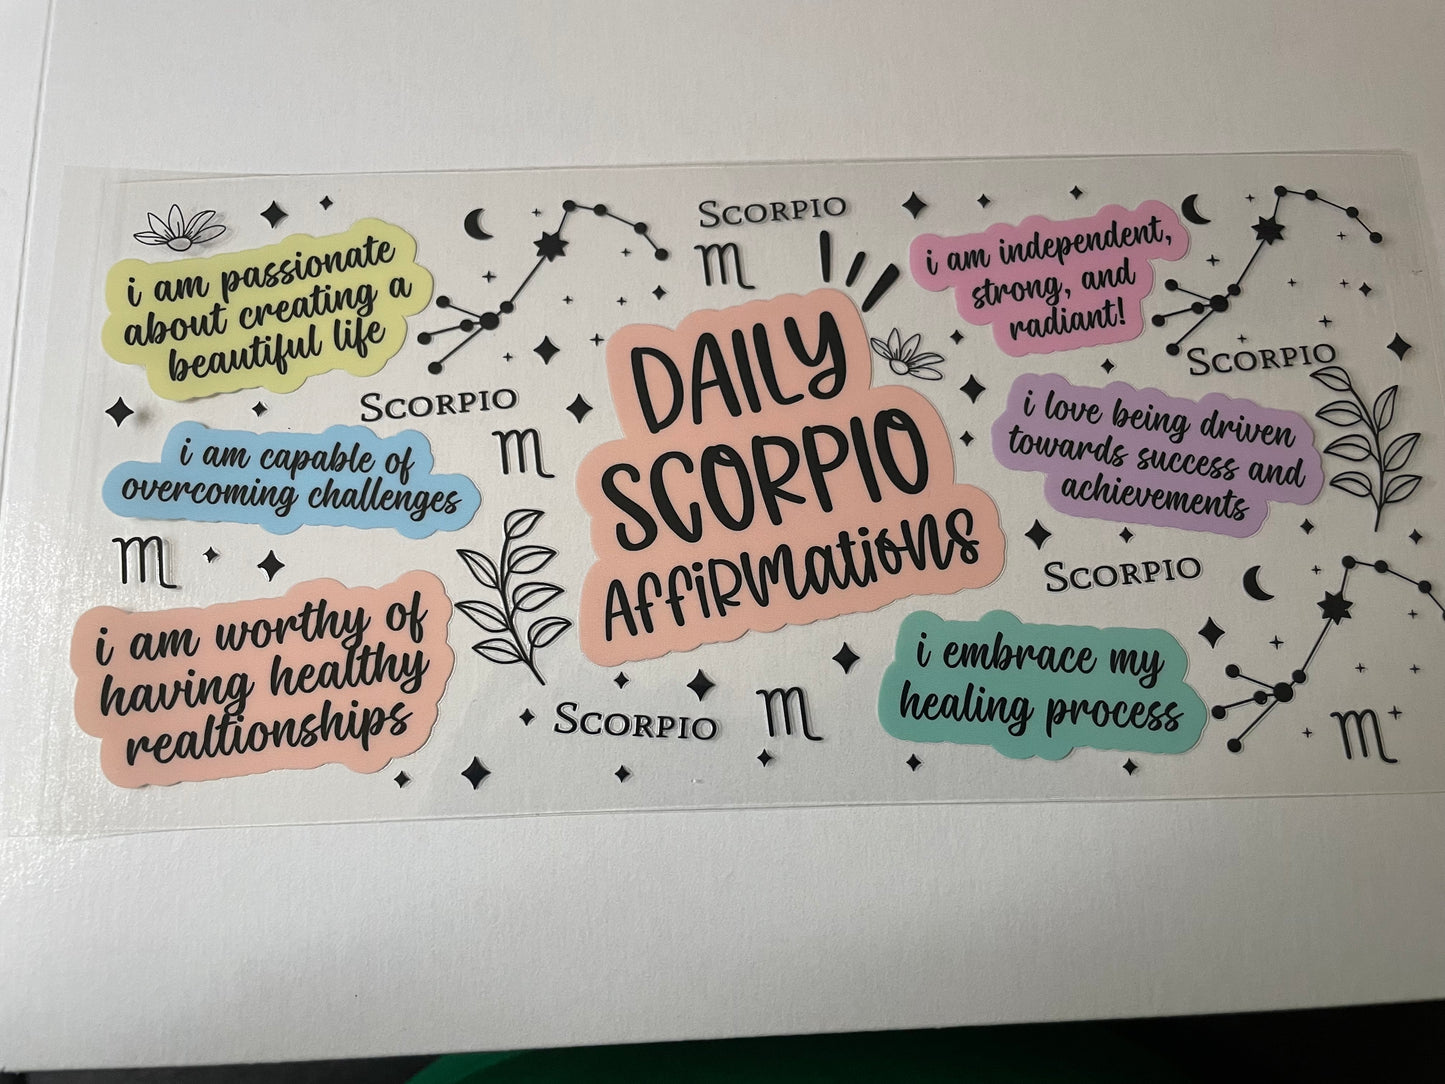 i am passionate
about creating a
beautiful life
SCORPIO
i am capable of
overcoming challenges
i am worthy of
having healthy
realtionships
SCORPIO
DAILY
SCORPIO
AFFIRMATIONS
SCORPIO
i am independent,
strong, and
radiant!
SCORPIO
i love being driven
towards success and
achievements
SCORPIO
i embrace my
healing process